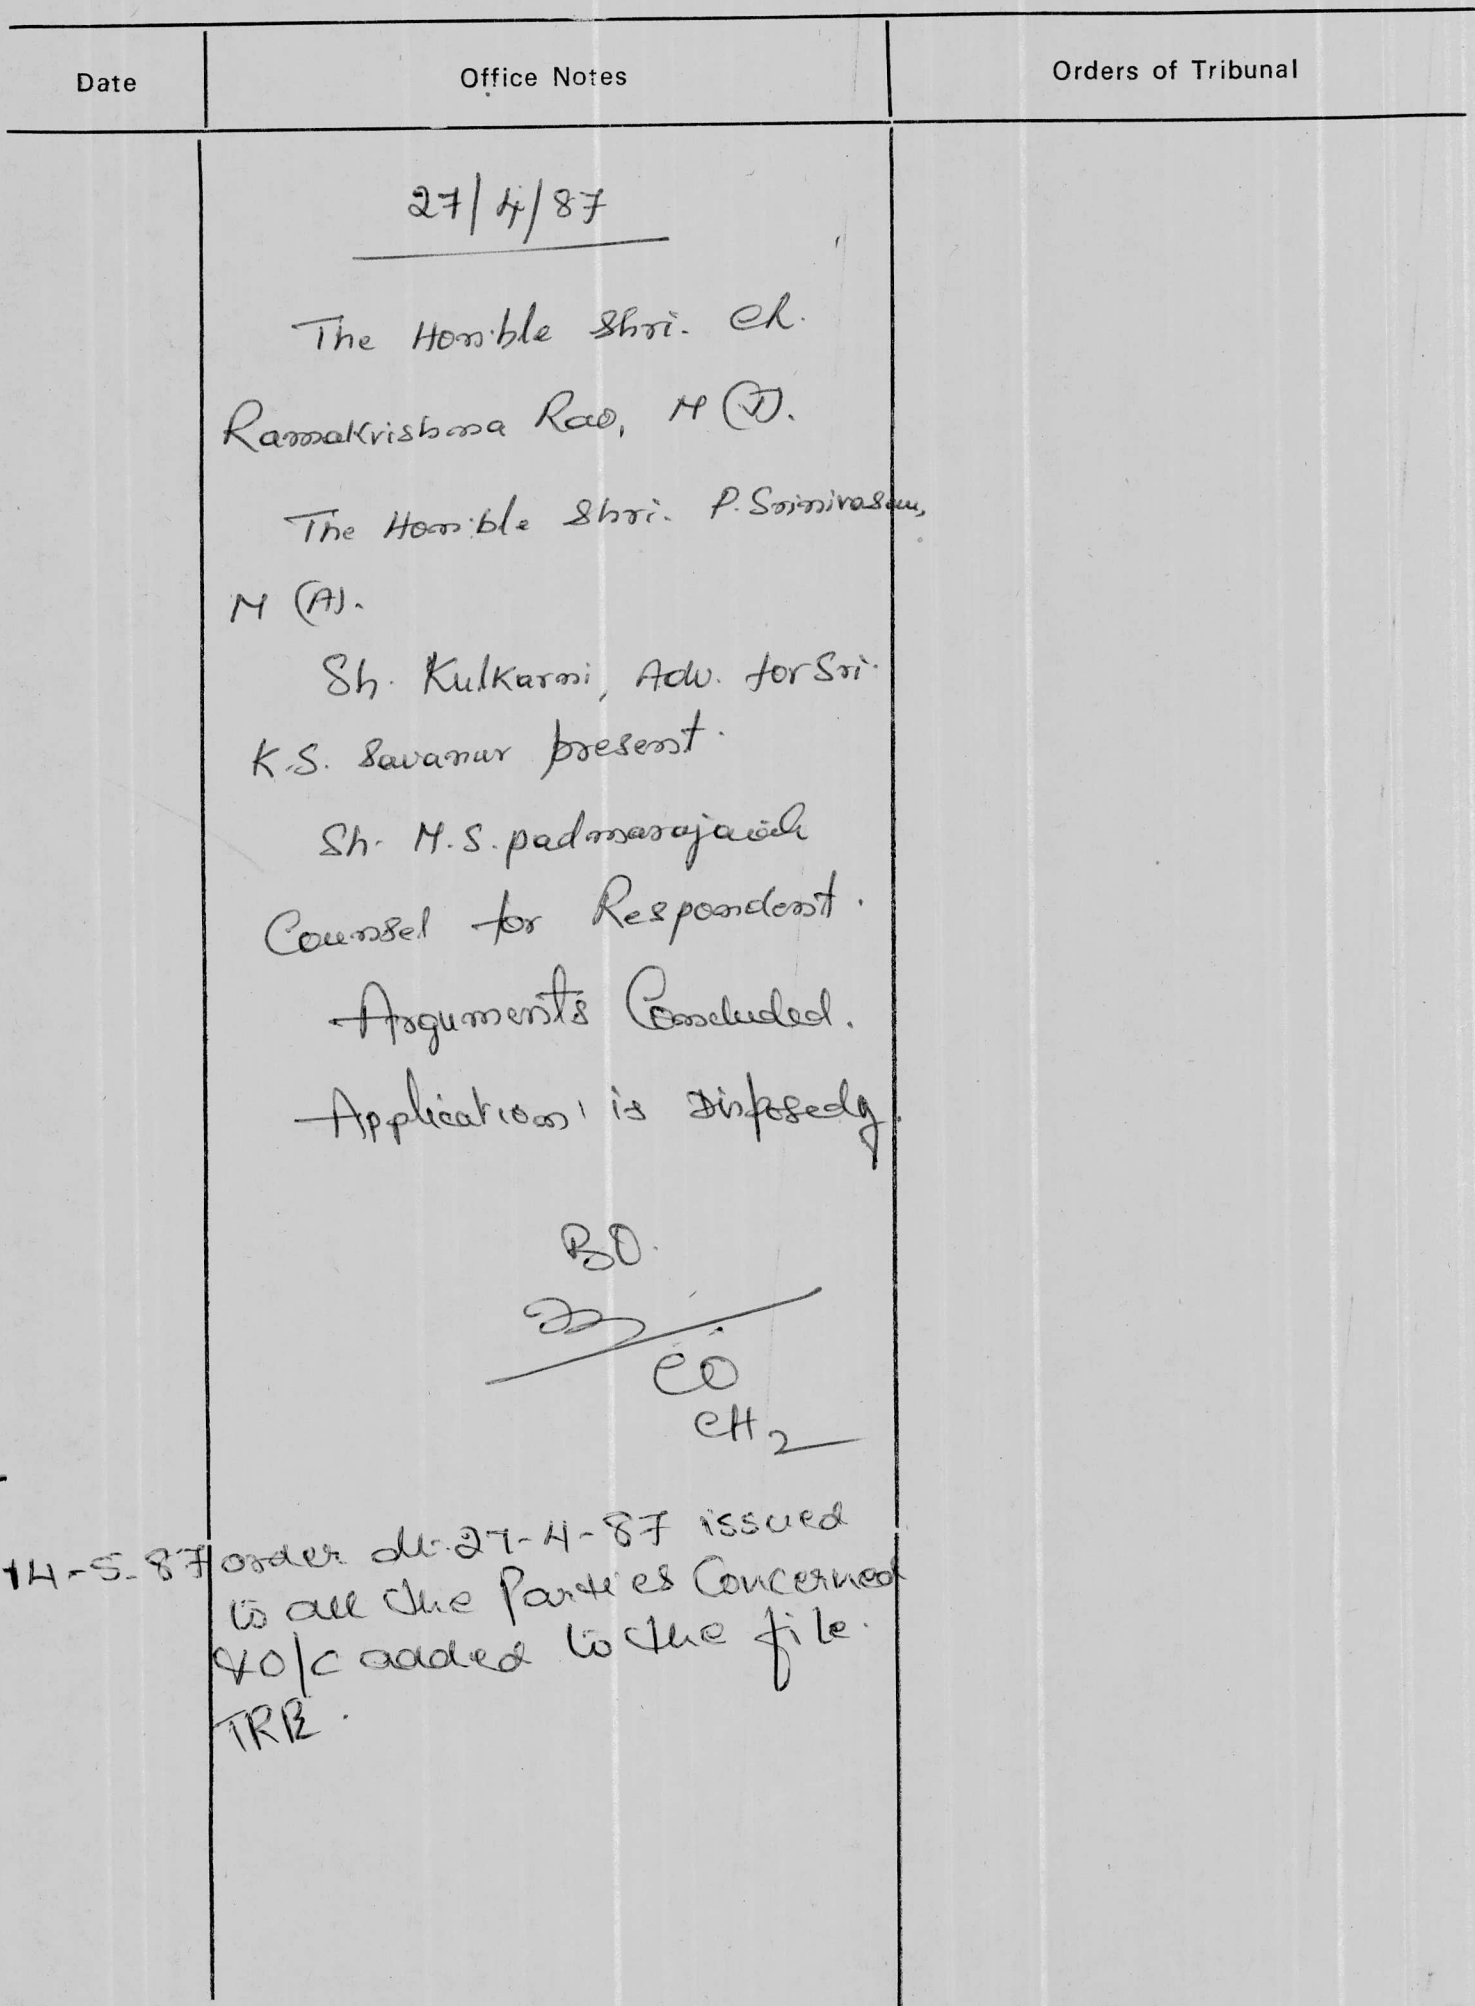 Date Office Notes Orders of Tribunal
27/4/87
The Hon'ble Shri. Ch.
Ramakrishna Rao, M (J).
The Hon'ble Shri. P. Srinivasan,
M (A).
Sh. Kulkarni, Adv. for Sri.
K.S. Savanur present.
Sh. M.S. padmarajaiah
Counsel for Respondent.
Arguments Concluded.
Application is Disposed of.
BO.
CO
CH2
14-5-87 order dt. 27-4-87 issued
to all the Parties Concerned
& O/C added to the file.